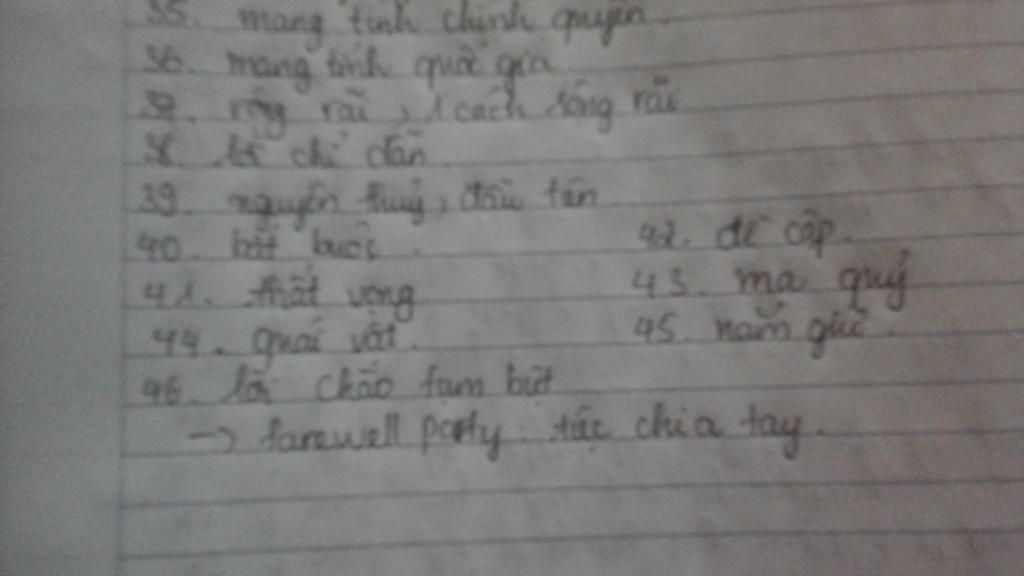 35. mang tính chính quyền.
36. mang tính quốc gia
37. rộng rãi, 1 cách rộng rãi
38. lời chỉ dẫn
39. nguyên thuỷ, đầu tiên
40. bắt buộc. 42. đề cập.
41. thất vọng 43. ma quỷ
44. quái vật. 45. nắm giữ.
46. lời chào tạm biệt
-> farewell party: tiệc chia tay.